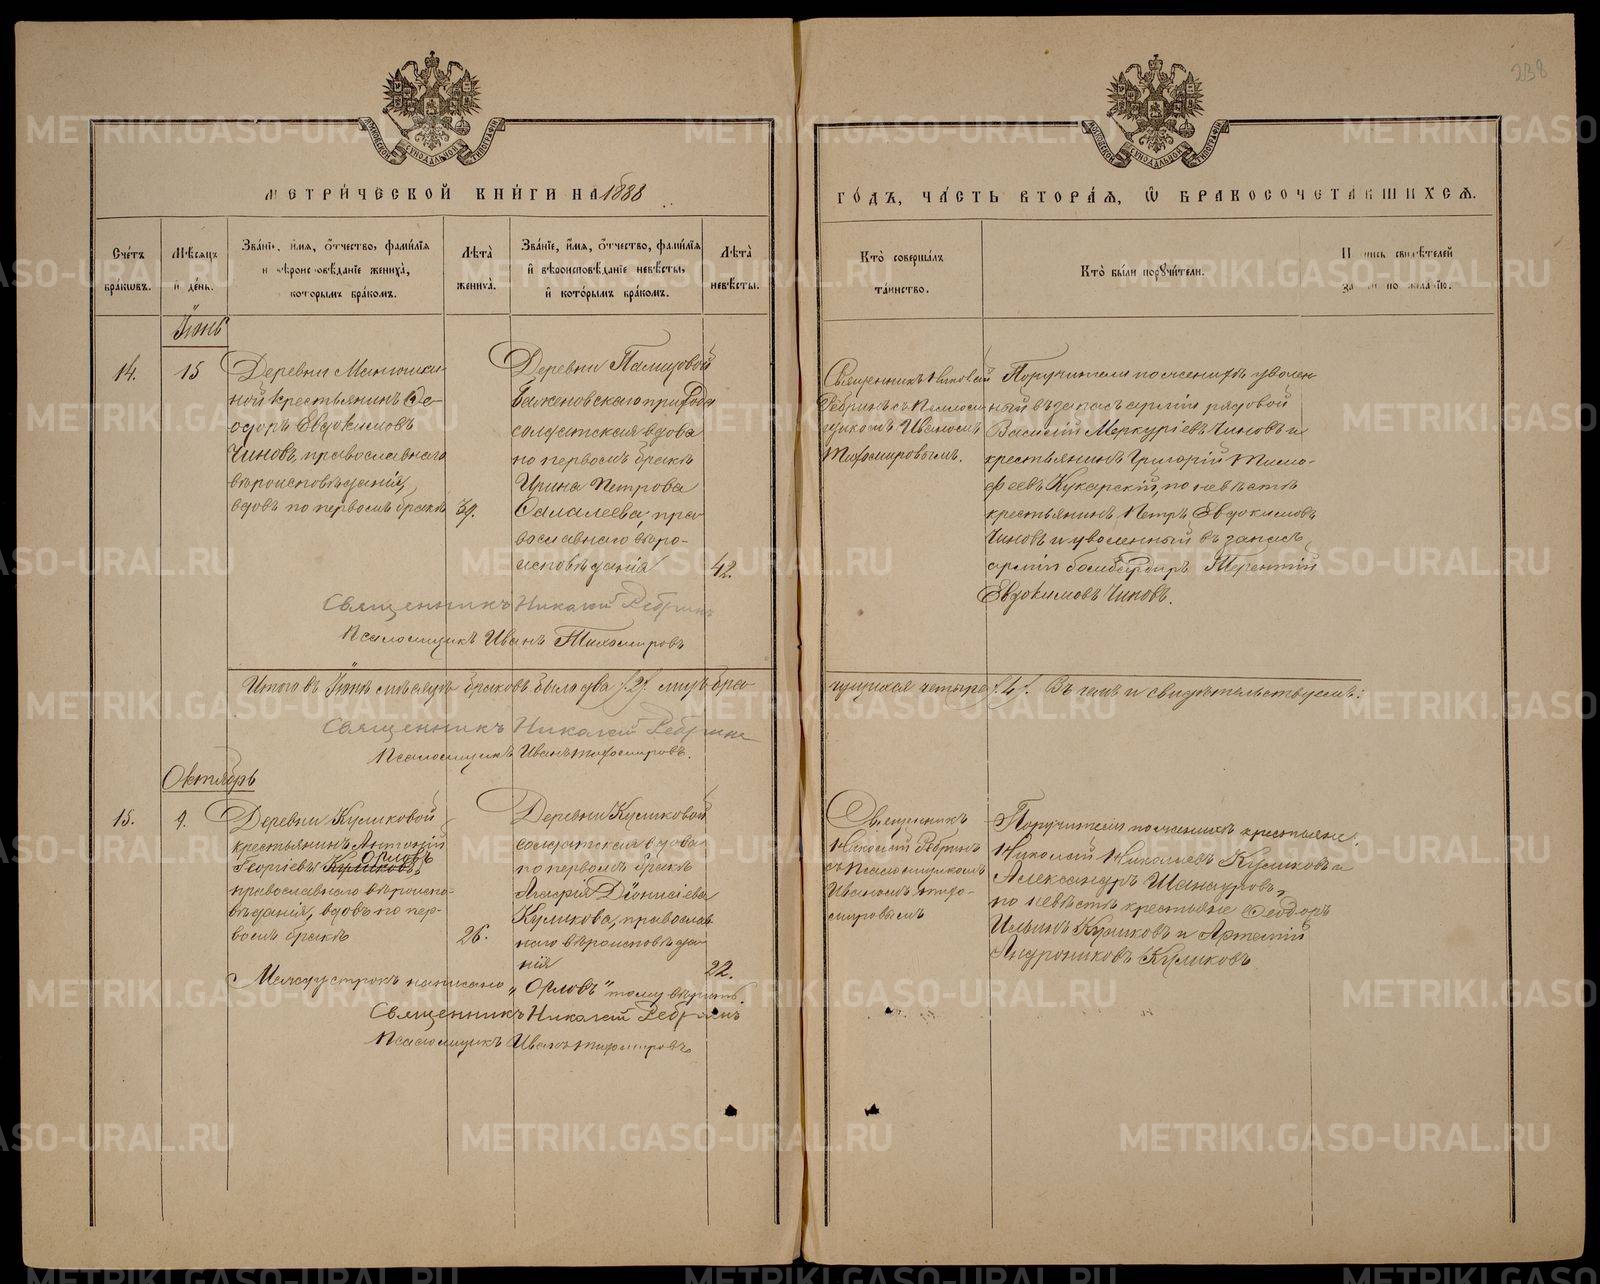 238
МЕТРИЧЕСКОЙ КНИГИ НА 1888
ГОДЪ, ЧАСТЬ ВТОРАЯ, Ѡ БРАКОСОЧЕТАВШИХСЯ.
Счетъ браковъ.
Мѣсяцъ и день.
Званіе, имя, отчество, фамилія
и вѣроисповѣданіе жениха,
которымъ бракомъ.
Лѣта
жениха.
Званіе, имя, отчество, фамилія
и вѣроисповѣданіе невѣсты,
и которымъ бракомъ.
Лѣта
невѣсты.
Кто совершалъ
таинство.
Кто были поручители.
свидѣтелей
по желанію.
Іюнь
14.
15
Деревни Манюшки-
ной крестьянинъ Ѳе-
одоръ Евдокимовъ
Чиновъ, православнаго
вѣроисповѣданія,
вдовъ по первомъ бракѣ
39.
Деревни
Баженовскаго прихода
солдатская вдова
по первомъ бракѣ
Ирина Петрова
Салалеева, пра-
вославнаго вѣро-
исповѣданія
42.
Священникъ Николай
Ребринъ съ Псаломщи-
комъ Иваномъ
Тихомировымъ.
Поручители по женихѣ уволен-
ный въ запасъ арміи рядовой
Василій Меркуріевъ Чиновъ и
крестьянинъ Григорій Тимо-
феевъ Кукарскій, по невѣстѣ
крестьянинъ Петръ Евдокимовъ
Чиновъ и уволенный въ запасъ
арміи бомбардиръ Терентій
Евдокимовъ Чиновъ.
Священникъ Николай Ребринъ
Псаломщикъ Иванъ Тихомировъ
Итого въ Іюнѣ мѣсяцѣ браковъ было два /2/ лицъ бра-
чущихся четыре /4/. Въ чемъ и свидѣтельствуемъ:
Священникъ Николай Ребринъ
Псаломщикъ Иванъ Тихомировъ.
Октябрь
15.
9.
Деревни Куликовой
крестьянинъ Антоній
Орловъ
Георгіевъ Куликовъ,
православнаго вѣроиспо-
вѣданія, вдовъ по пер-
вомъ бракѣ
26.
Деревни Куликовой
солдатская вдова
по первомъ бракѣ
Агафія Діонисіева
Куликова, православ-
наго вѣроисповѣда-
нія
22.
Священникъ
Николай Ребринъ
съ Псаломщикомъ
Иваномъ Тихо-
мировымъ
Поручители по женихѣ крестьяне
Николай Николаевъ Куликовъ и
Александръ Шанауровъ,
по невѣстѣ крестьяне Ѳеодоръ
Ильинъ Куликовъ и Артемій
Андрониковъ Куликовъ
Между строкъ написано „Орловъ" тому вѣрить.
Священникъ Николай Ребринъ
Псаломщикъ Иванъ Тихомировъ
METRIKI.GASO-URAL.RU